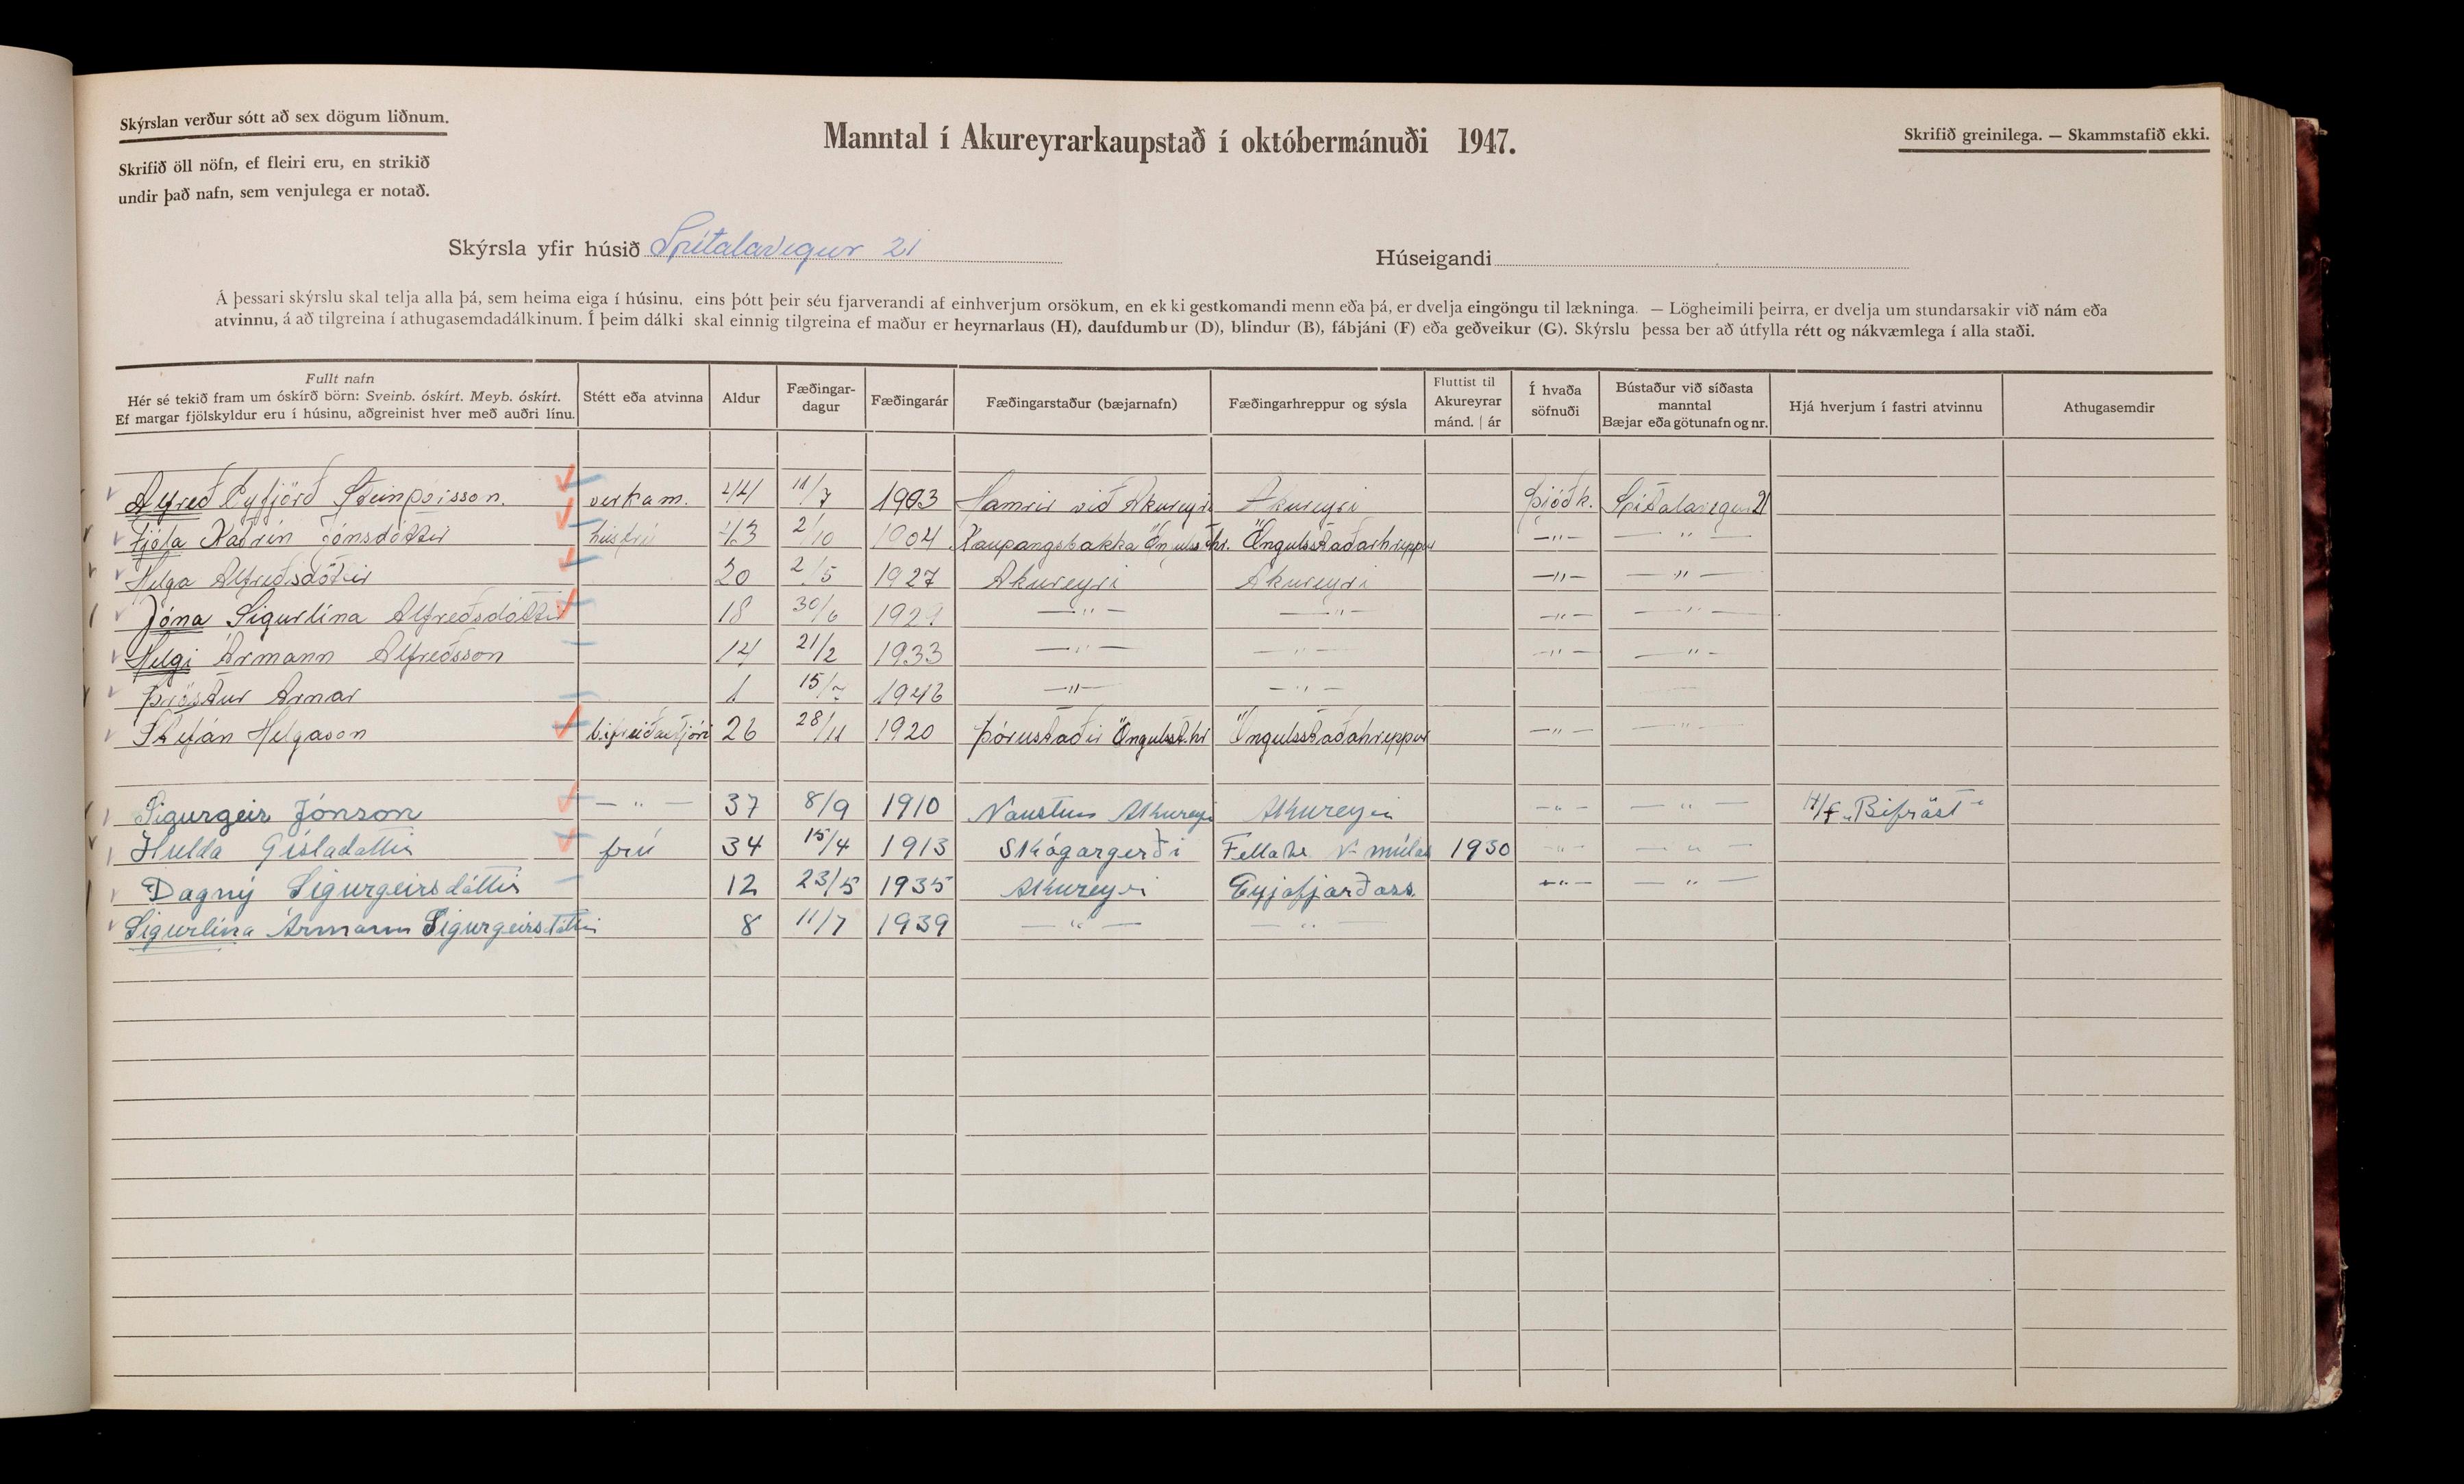 Skýrslan verður sótt að sex dögum liðnum.
Manntal í Akureyrarkaupstað í októbermánuði 1947.
Skrifið greinilega. — Skammstafið ekki.
Skrifið öll nöfn, ef fleiri eru, en strikið
undir það nafn, sem venjulega er notað.
Skýrsla yfir húsið Spítalavegur 21
Húseigandi
Á þessari skýrslu skal telja alla þá, sem heima eiga í húsinu, eins þótt þeir séu fjarverandi af einhverjum orsökum, en ekki gestkomandi menn eða þá, er dvelja eingöngu til lækninga. — Lögheimili þeirra, er dvelja um stundarsakir við nám eða
atvinnu, á að tilgreina í athugasemdadálkinum. Í þeim dálki skal einnig tilgreina ef maður er heyrnarlaus (H), daufdumbur (D), blindur (B), fábjáni (F) eða geðveikur (G). Skýrslu þessa ber að útfylla rétt og nákvæmlega í alla staði.
Fullt nafn
Hér sé tekið fram um óskírð börn: Sveinb. óskírt. Meyb. óskírt.
Ef margar fjölskyldur eru í húsinu, aðgreinist hver með auðri línu.
Stétt eða atvinna
Aldur
Fæðingar-
dagur
Fæðingarár
Fæðingarstaður (bæjarnafn)
Fæðingarhreppur og sýsla
Fluttist til
Akureyrar
mánd. | ár
Í hvaða
söfnuði
Bústaður við síðasta
manntal
Bæjar eða götunafn og nr.
Hjá hverjum í fastri atvinnu
Athugasemdir
Alfreð Eyfjörð Steinþórsson. verkam. 44 11/7 1903 Hamrir við Akureyri Akureyri Þjóðk. Spítalavegur 21
Fjóla Katrín Jónsdóttir húsfrú 43 2/10 1904 Kaupangsbakka Öngulsst.hr. Öngulsstaðarhreppur —"— —"—
Helga Alfreðsdóttir 20 2/5 1927 Akureyri Akureyri —"— —"—
Jóna Sigurlína Alfreðsdóttir 18 30/6 1929 —"— —"— —"— —"—
Helgi Ármann Alfreðsson 14 21/2 1933 —"— —"— —"— —"—
Þröstur Arnar 1 15/7 1946 —"— —"—
Stefán Helgason bifreiðastjóri 26 28/11 1920 Þórustaðir Öngulsst.hr Öngulsstaðahreppur —"— —"—
Sigurgeir Jónson —"— 37 8/9 1910 Naustum Akureyri Akureyri —"— —"— H/f „Bifröst"
Hulda Gísladóttir frú 34 15/4 1913 Skógargerði Fellahr. N-múlas 1930 —"— —"—
Dagný Sigurgeirsdóttir 12 23/5 1935 Akureyri Eyjafjarðass. —"— —"—
Sigurlína Ármann Sigurgeirsdóttir 8 11/7 1939 —"— —"—